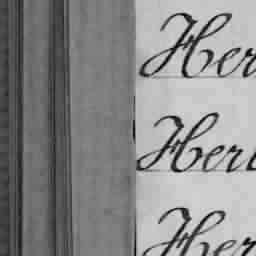 Her
Heri
Her